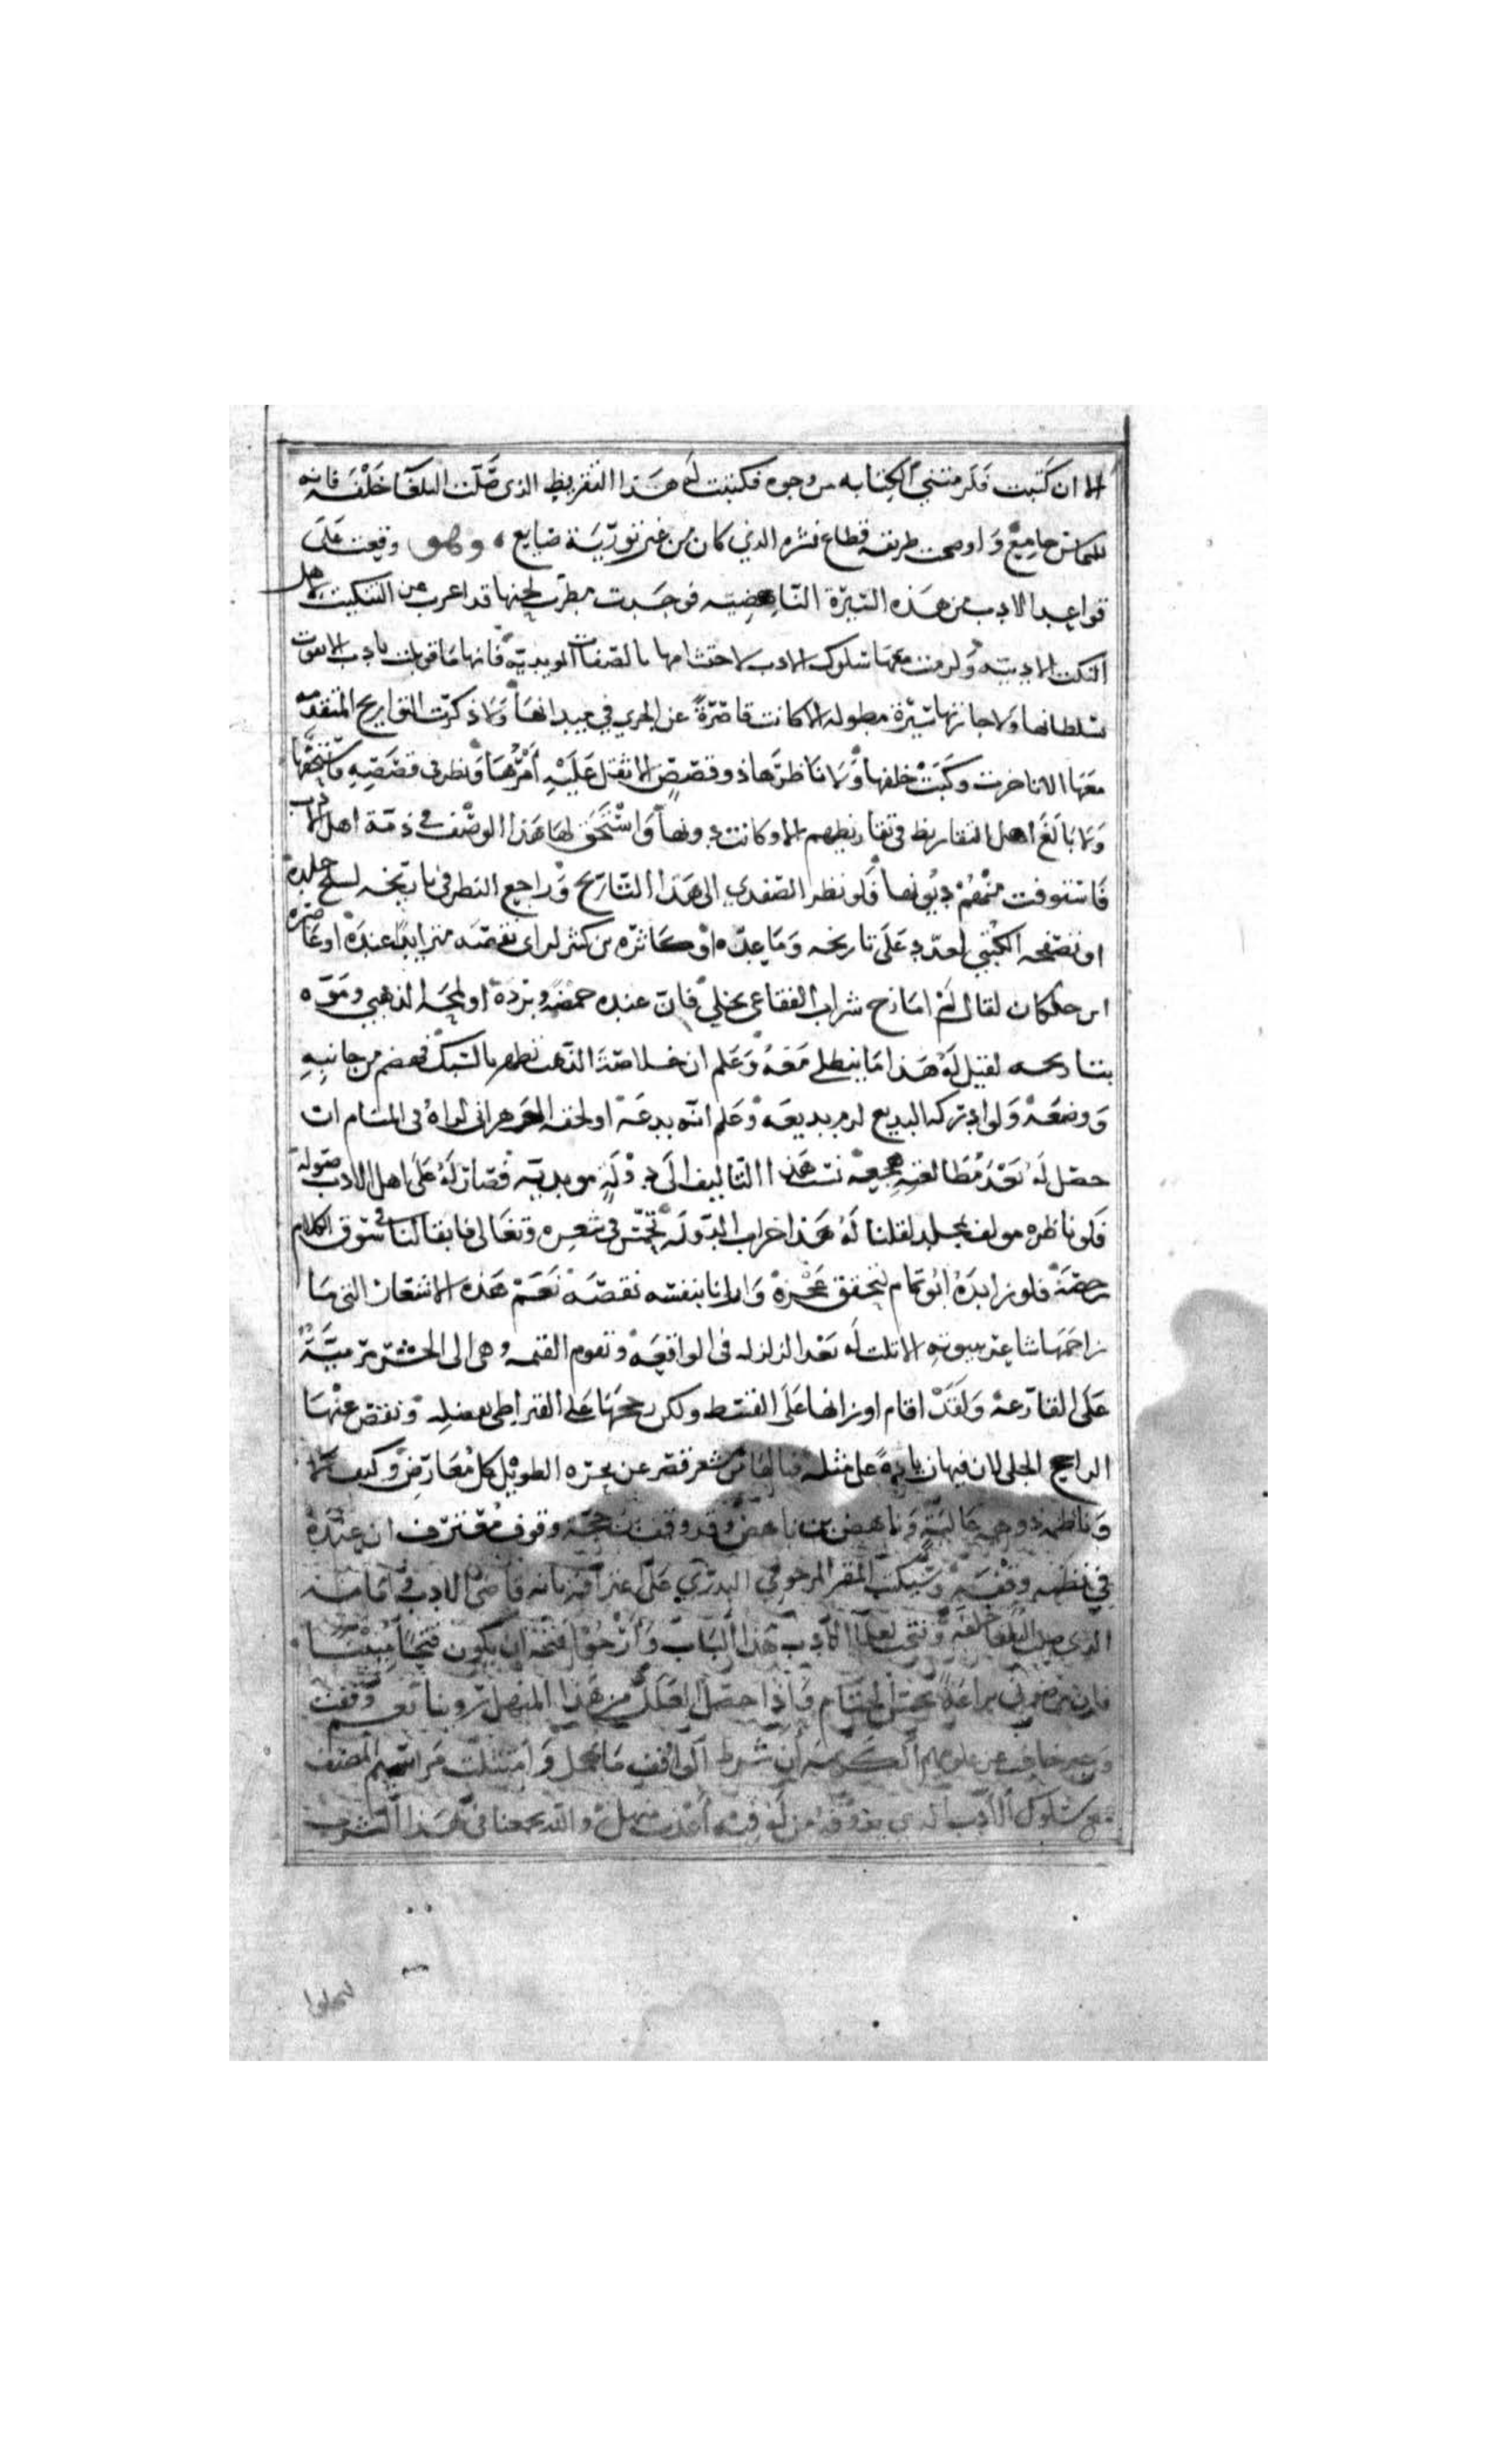 الا ان كتبت فلزمتني الكتابة من وجوه فكتبت له هذا التقريظ الذي صلت البلغا خلفه فانه
للمحاسن جامع واوضحت طريقه قطاع نثره الذي كان من غير تورية ضايع ، وهو وقفت على
قواعد الادب من هذه السيرة الناهضيه فوجدت مطرب لحنها قد اعرب عن التنكيت لاهل
النكت الادبيه ولزمت معها سلوك الادب لاحتشامها بالصفات المويدية فانها ما قوبلت بادب الا بقوت
سلطانها ولا جازتها سيرة مطوله الا كانت قاصرة عن الجري في ميدانها ولا ذكرت التواريخ المتقدمه
معها الا تاخرت وكبت خلفها ولا ناظرها ذو قصص الا ثقل عليه امرها ونظر في قصصه فاستخفها
ولا بالغ اهل التقاريظ في تقاريظهم الا وكانت دونها واستحق لها هذا الوصف في ذمة اهل الادب
فاستوفت منهم ديونها فلو نظر الصفدي الى هذا التاريخ وراجع النظر في تاريخه لسلخ جلده
او تصفحه الكتبي لعدد على تاريخه وما عده او كاثره بن كثير لراى نقصه متزايدا عنده او عاصره
ابن خلكان لقال لم امازح شراب الفقاعي بخلي فان عنده حمضه وبرده او لمحه الذهبي وموه
بتاريخه لقيل له هذا ما ينطلي معه وعلم ان خلاصة الذهب تظهر بالسبك فهضم من جانبه
ووضعه ولو ادركه البديع لرم بديعه وعلم انه بدعة او لحقه الوهراني لراه في المنام ات
حصل له بعد مطالعته هجيعه نسب هذا التاليف الى دولة مويدية فصار له على اهل الادب صوله
فلو ناظره مولف مجلد لقلنا له هذا خراب الدوله تجمش في شعره وتغالى فابقا لنا في سوق الكلام
رخصة فلو زايده ابو تمام لتحقق عجزه وارانا بنفسه نقصه نعم هذه الاشعار التي ما
زاحمها شاعر ببيوته الا تلت له بعد الزلزله في الواقعه وتقوم القيمه وهي الى الحشر مرميه
على القارعة ولقد اقام اوزانها على القسط ولكن رجحها على القيراطي بفضله ونقص عنها
الراجح الحلي لان فيها زيادة على مثله فيا لها من شعر قصر عن بحره الطويل كل معارض وكيف لا
وناظمه ذو همه عالية وناهض بن ناهض وقد وقف بن حجة وقوف معترف ان عنده
في نظمه وقفه وتنكيت المقر المرحومي البدري على عز اقرانه قاضي الادب في امامته
الذي صلى البلغا خلفه وفتحت لعل الادب هذا الباب وارجو فتحه ان يكون فتحا مبينا
فان براعته تحسن الختام فاذا حصل العلل من هذا المنهل روينا نعم وقفت
وغير خاف عن علومهم الكريمه ان شرط الواقف ما يجهل وامتثلت مراسيم المصنف
مع سلوك الادب الذي يذوقه من له فيه اعذب منهل والله يجمعنا في هذا الشرف